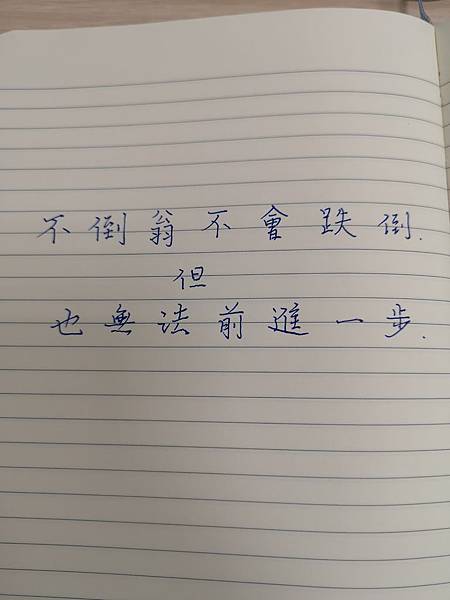 不倒翁不會跌倒.
但
也無法前進一步.